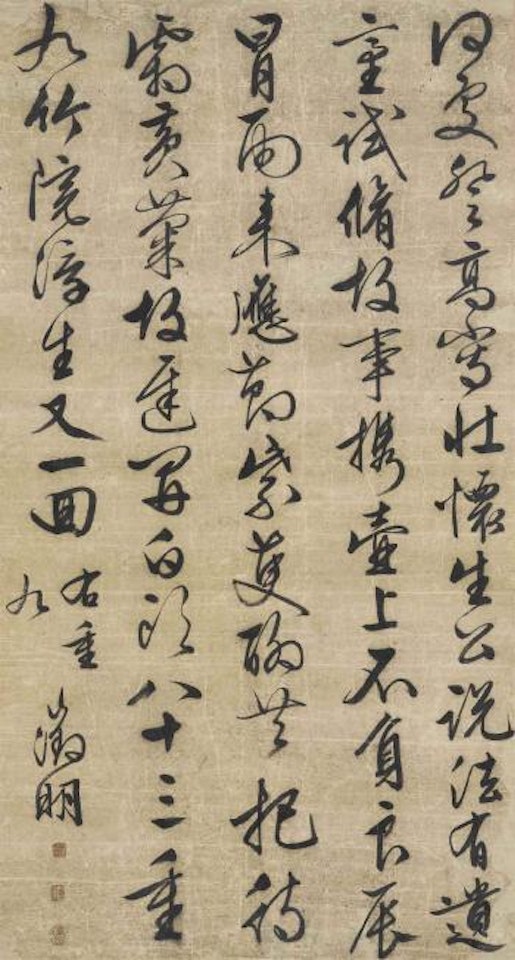 何處登高寫壯懷生公說法有遺
臺試脩故事攜壺上不負良辰
冒雨來應節紫萸聊共把待
霜黃菊故遲開白頭八十三重
九竹院浮生又一回
右重
九
徵明